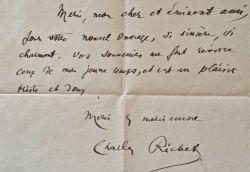 Merci, mon cher et éminent ami,
pour votre nouvel ouvrage, si sincère, si
charmant. Vos souvenirs me font revivre
ceux de mon jeune temps, et c'est un plaisir
triste et doux
Merci & merci encore
Charles Richet